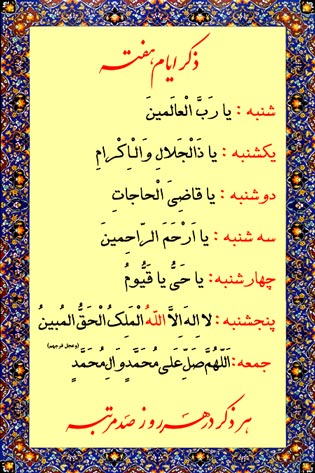 ذکر ایام هفته
شنبه : یا رَبَّ الْعالَمینَ
یکشنبه : یا ذَالْجَلالِ وَالْاِکْرامِ
دوشنبه : یا قاضِیَ الْحاجاتِ
سه شنبه : یا اَرْحَمَ الرّاحِمینَ
چهارشنبه: یا حَیُّ یا قَیُّومُ
پنجشنبه: لا اِلهَ اِلاَّ اللّهُ الْمَلِکُ الْحَقُّ الْمُبینُ
جمعه: اَللّهُمَّ صَلِّ عَلی مُحَمَّدٍ وَ الِ مُحَمَّدٍ
(وعجل فرجهم)
هر ذکر در هر روز صد مرتبه